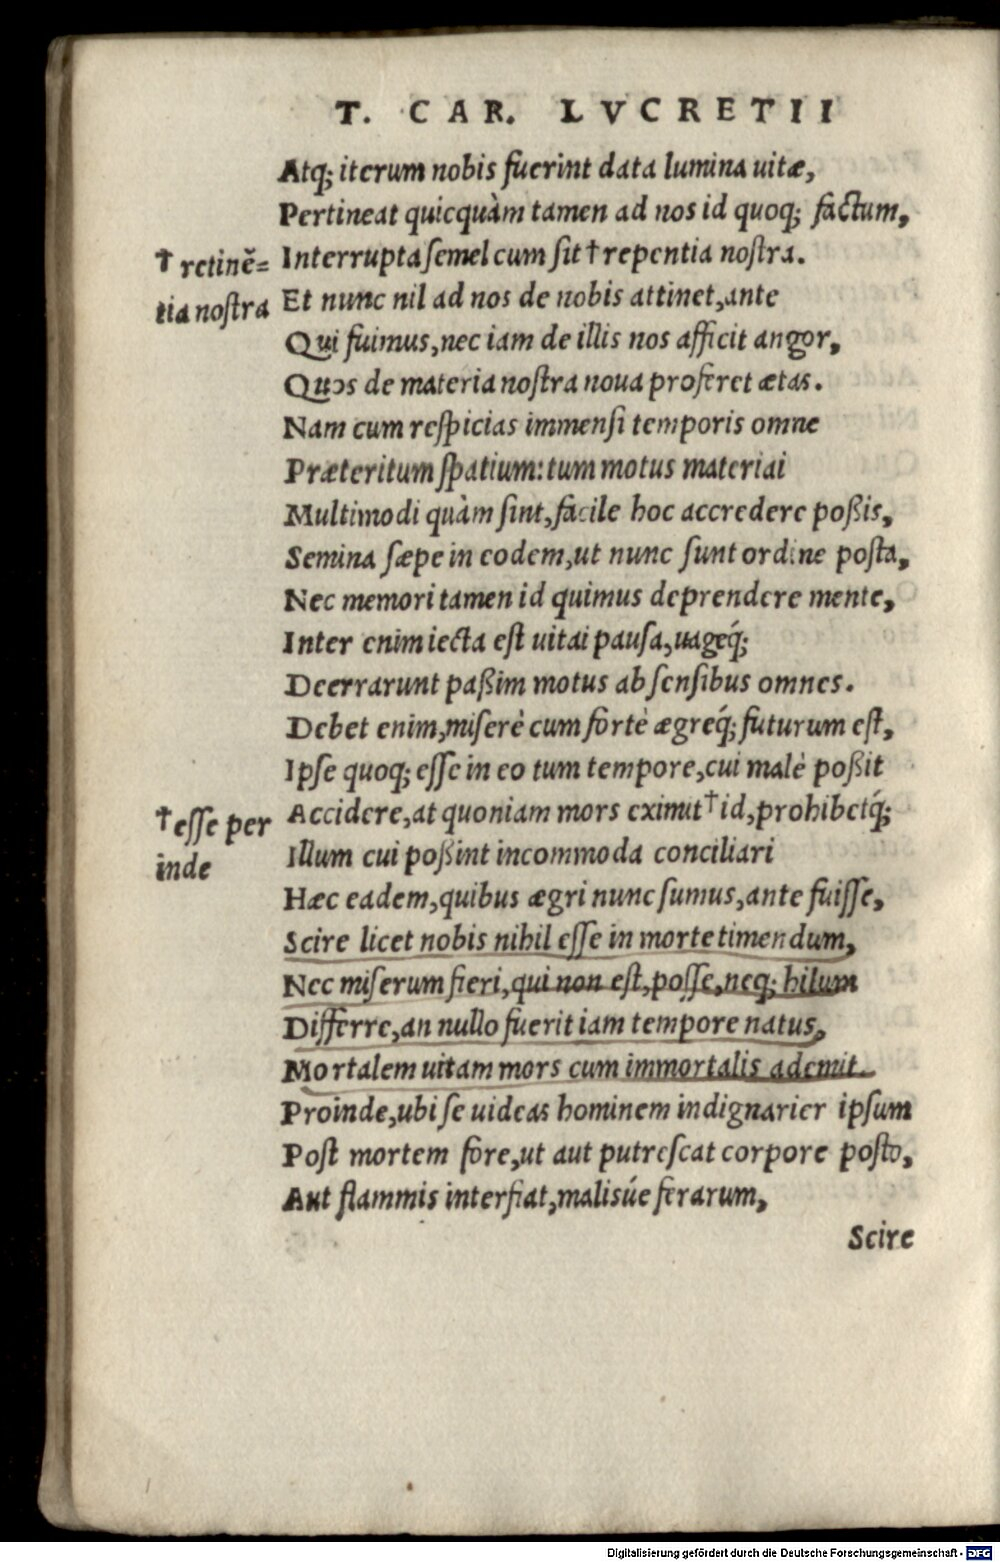 T. CAR. LVCRETII
Atq; iterum nobis fuerint data lumina uitæ,
Pertineat quicquàm tamen ad nos id quoq; factum,
† retinē=
Interrupta semel cum sit † repentia nostra.
tia nostra
Et nunc nil ad nos de nobis attinet, ante
Qui fuimus, nec iam de illis nos afficit angor,
Quos de materia nostra noua proferet ætas.
Nam cum respicias immensi temporis omne
Præteritum spatium: tum motus materiai
Multimodi quàm sint, facile hoc accredere poßis,
Semina sæpe in eodem, ut nunc sunt ordine posta,
Nec memori tamen id quimus deprendere mente,
Inter enim iecta est uitai pausa, uageq́;
Deerrarunt paßim motus ab sensibus omnes.
Debet enim, miserè cum fortè ægreq́; futurum est,
Ipse quoq; esse in eo tum tempore, cui malè poßit
† esse per
Accidere, at quoniam mors eximit † id, prohibetq́;
inde
Illum cui poßint incommoda conciliari
Hæc eadem, quibus ægri nunc sumus, ante fuisse,
Scire licet nobis nihil esse in morte timendum,
Nec miserum fieri, qui non est, posse, neq; hilum
Differre, an nullo fuerit iam tempore natus,
Mortalem uitam mors cum immortalis ademit.
Proinde, ubi se uideas hominem indignarier ipsum
Post mortem fore, ut aut putrescat corpore posto,
Aut flammis interfiat, malisúe ferarum,
Scire
Digitalisierung gefördert durch die Deutsche Forschungsgemeinschaft - DFG